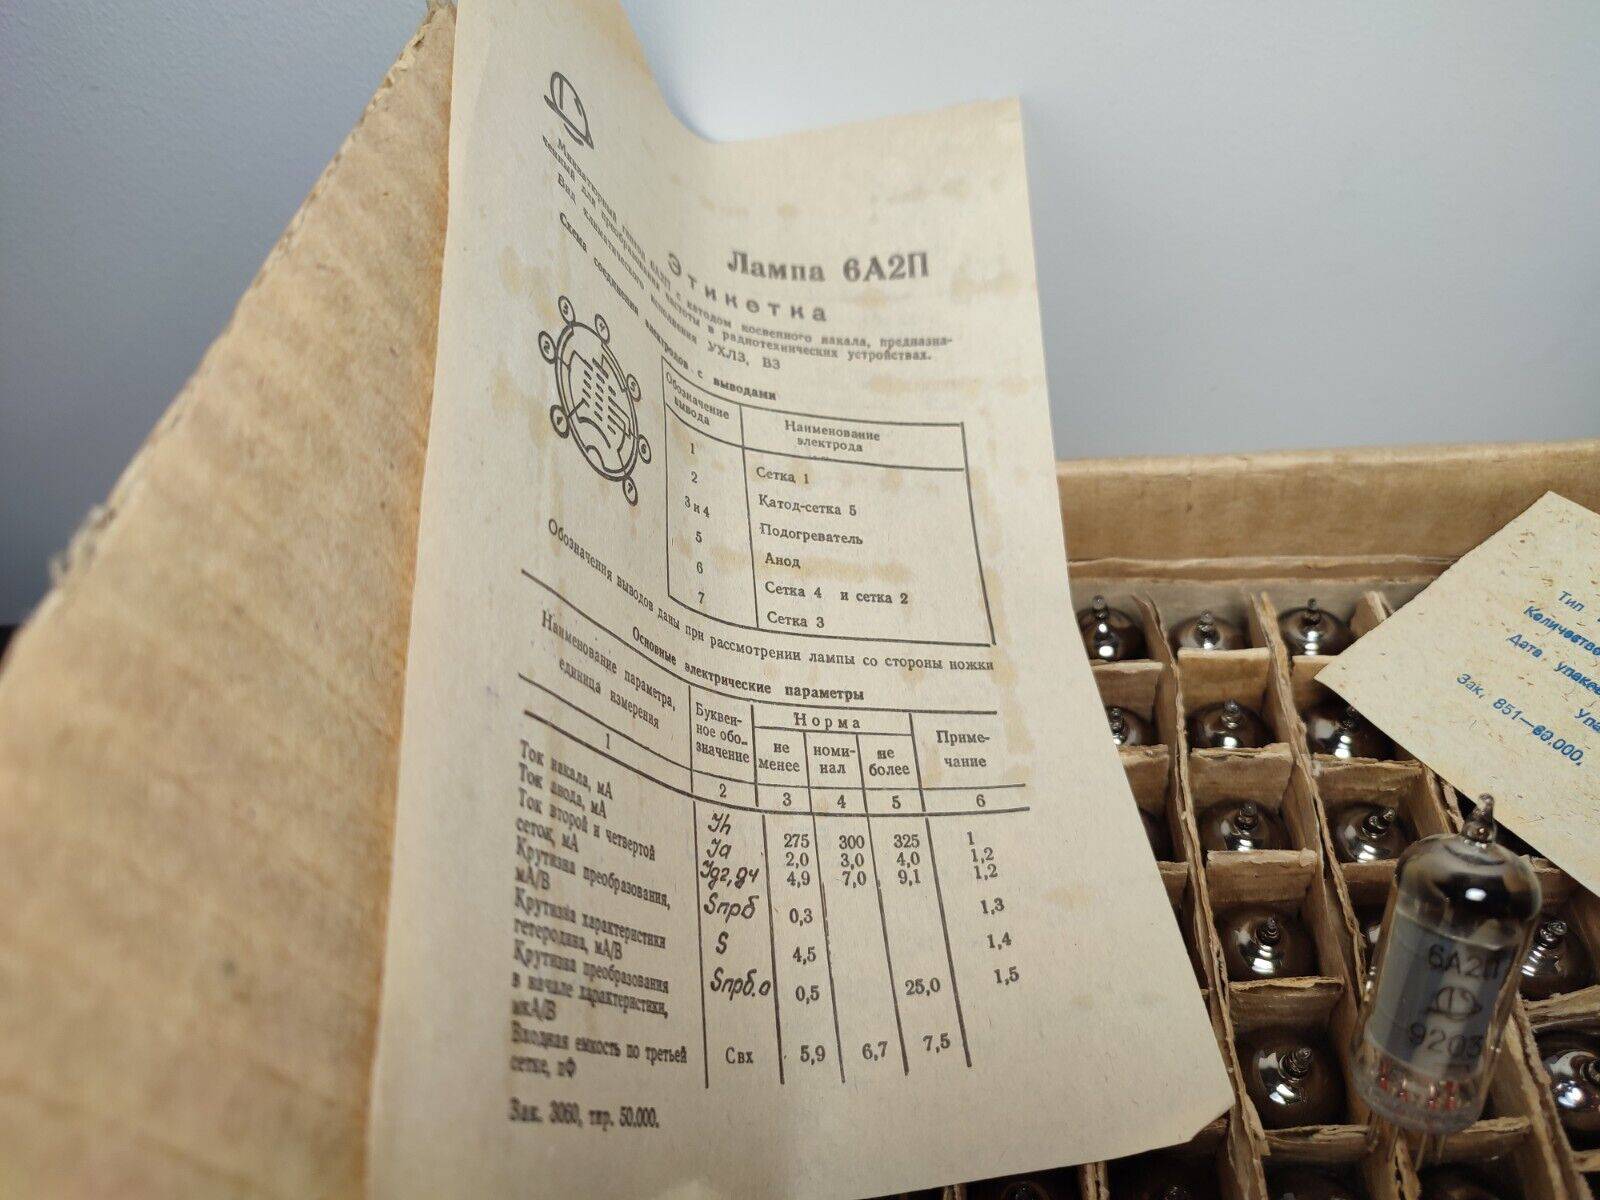 Лампа 6А2П
Этикетка
Миниатюрный гептод 6А2П с катодом косвенного накала, предназна-
ченный для преобразования частоты в радиотехнических устройствах.
Вид климатического исполнения УХЛ3, В3
Схема соединения электродов с выводами
1
2
3
4
5
6
7
Обозначение вывода
Наименование электрода
1 Сетка 1
2 Катод-сетка 5
3 и 4 Подогреватель
5 Анод
6 Сетка 4 и сетка 2
7 Сетка 3
Обозначения выводов даны при рассмотрении лампы со стороны ножки
Основные электрические параметры
Наименование параметра,
единица измерения
Буквен-
ное обо-
значение
Норма
не
менее
номи-
нал
не
более
Приме-
чание
1 2 3 4 5 6
Ток накала, мА Jh 275 300 325 1
Ток анода, мА Ja 2,0 3,0 4,0 1,2
Ток второй и четвертой
сеток, мА Jg2,g4 4,9 7,0 9,1 1,2
Крутизна преобразования,
мА/В Sпрб 0,3 1,3
Крутизна характеристики
гетеродина, мА/В S 4,5 1,4
Крутизна преобразования
в начале характеристики,
мкА/В Sпрб.о 0,5 25,0 1,5
Входная емкость по третьей
сетке, пФ Свх 5,9 6,7 7,5
Зак. 3060, тир. 50.000.
Тип
Количество
Дата упаков
Упа
Зак. 851—60.000.
6А2П
9203